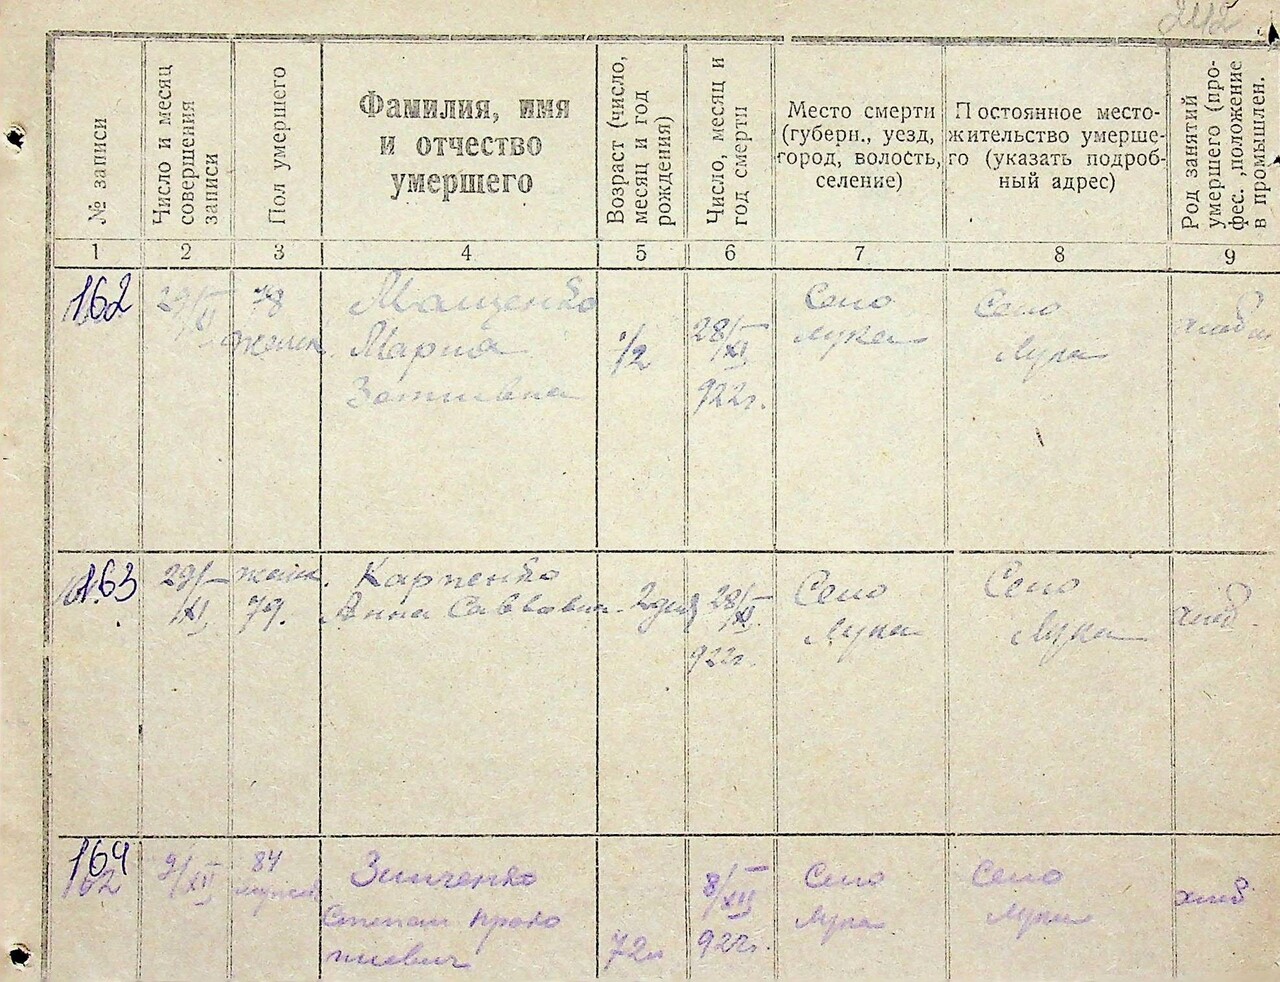 242
№ записи
Число и месяц
совершения
записи
Пол умершего
Фамилия, имя
и отчество
умершего
Возраст (число,
месяц и год
рождения)
Число, месяц и
год смерти
Место смерти
(губерн., уезд,
город, волость,
селение)
Постоянное место-
жительство умерше-
го (указать подроб-
ный адрес)
Род занятий
умершего (про-
фес., положение
в промышлен.
1 2 3 4 5 6 7 8 9
162
29/XI
78
женск.
Мащенко
Мария
Зотивна
1/2
28/XI
922г.
Село
Лука
Село
Лука
хлеб
163
29/XI
женск.
79.
Карпенко
Анна Саввовна
2 дня
28/XI
922г.
Село
Лука
Село
Лука
хлеб.
164
162
9/XII
84
мужск
Зинченко
Степан Проко
пиевич
72л
8/XII
922г.
Село
Лука
Село
Лука
хлеб